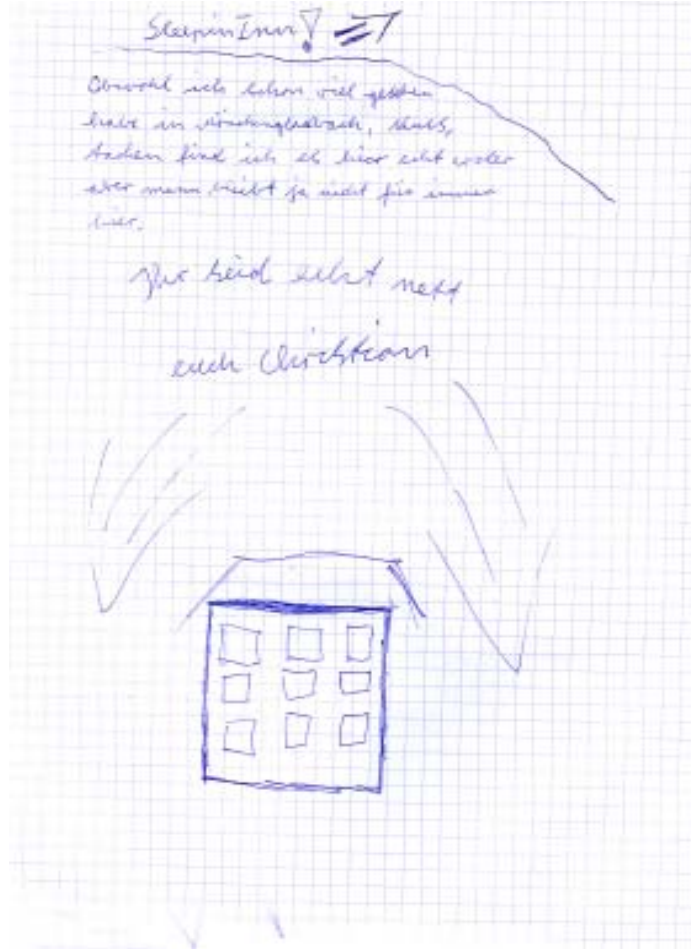 SleepinInn!
Obwohl ich schon viel gesehen
habe in Mönchengladbach,
Aachen find ich es hier echt
aber mann bleibt ja nicht für immer
hier.
Ihr seid echt nett
euch Christian